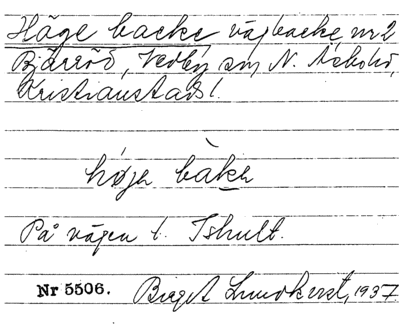 Häge backe vägbacke nr 2
Bjärröd, Vedby sn, N. Åsbo hd,
Kristianstads l.
højə bàkə
På vägen t. Ishult.
Nr 5506. Birgit Lundkvist, 1937